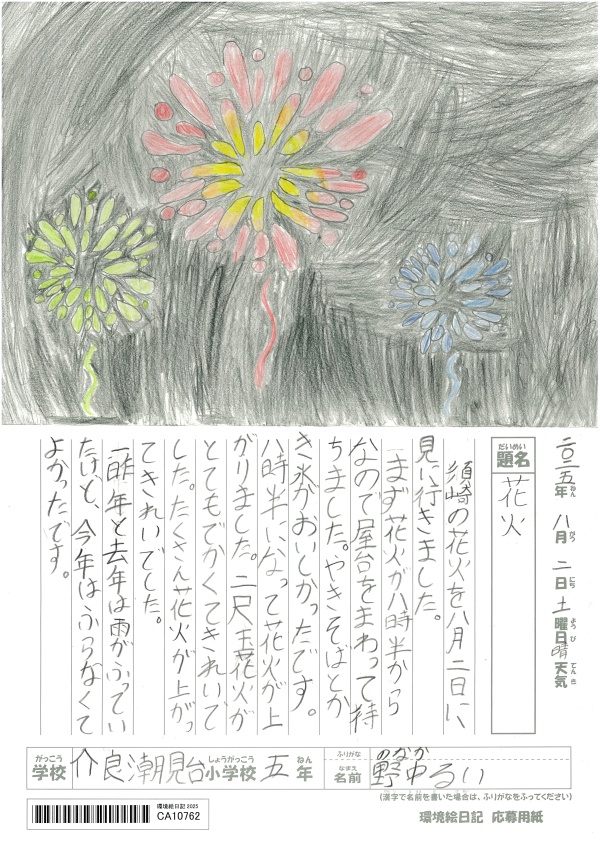 二〇二五年 八月 二日 土曜日 晴天気
ねん がつ にち ようび てんき
だいめい
題名
花火
須崎の花火を八月二日に
見に行きました。
まず花火が八時半から
なので屋台をまわって待
ちました。やきそばとか
き氷がおいしかったです。
八時半になって花火が上
がりました。二尺玉花火が
とてもでかくてきれいで
した。たくさん花火が上がっ
てきれいでした。
昨年と去年は雨がふってい
たけど、今年はふらなくて
よかったです。
がっこう しょうがっこう ねん
学校 介良潮見台小学校 五年
ふりがな のなか
なまえ
名前 野中るい
(漢字で名前を書いた場合は、ふりがなをふってください)
環境絵日記 2025
CA10762
環境絵日記 応募用紙